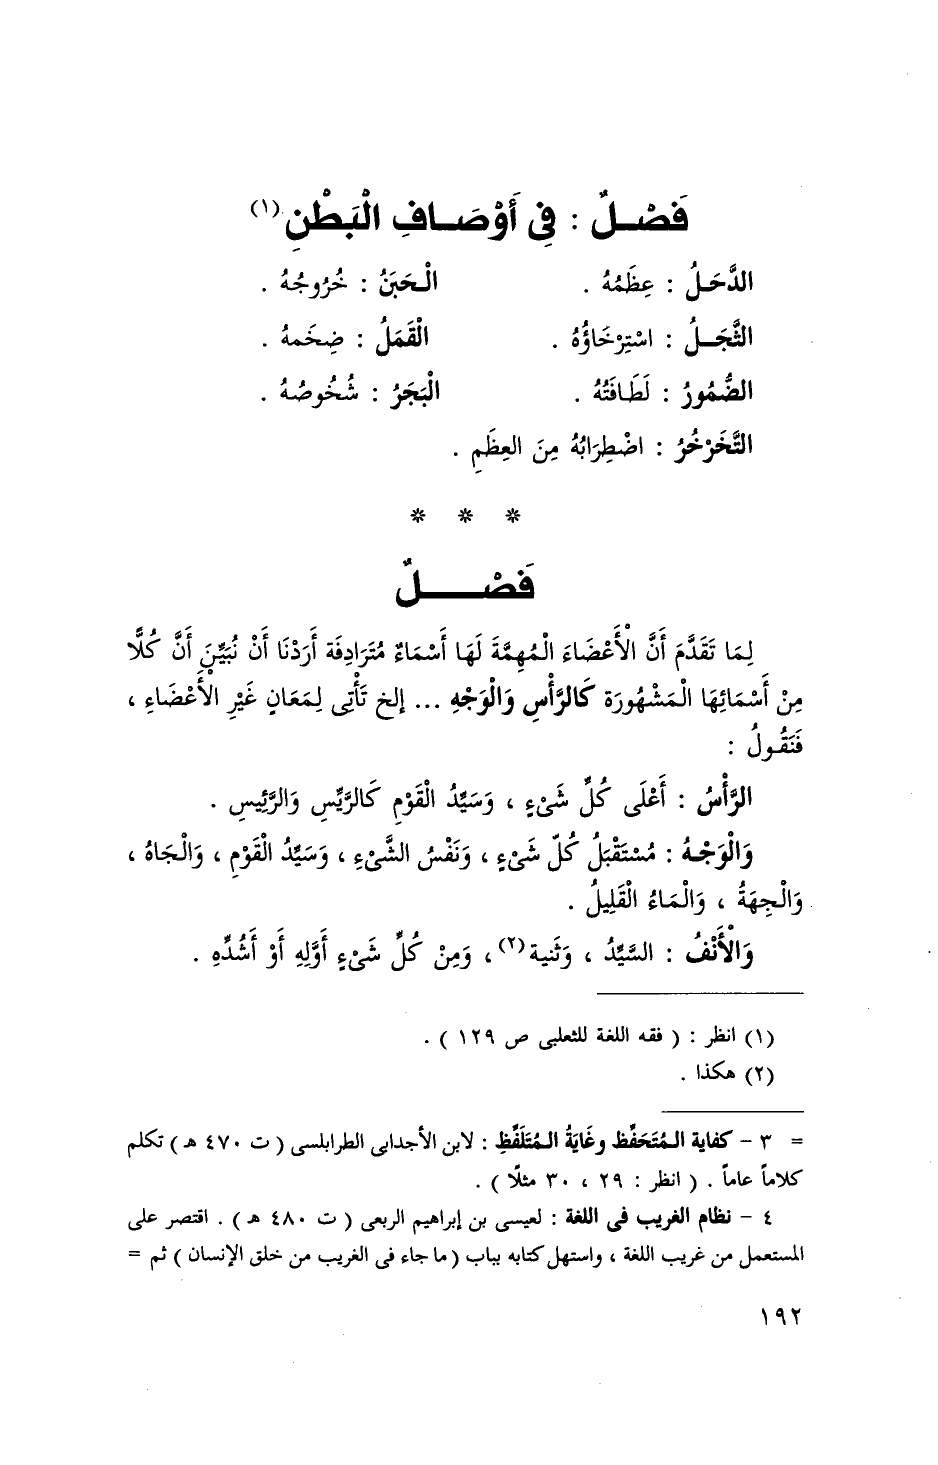 فَصْـلٌ : فِى أَوْصَـافِ الْبَطْنِ (١)
الدَّحَلُ : عِظَمُهُ . الْحَبَنُ : خُرُوجُهُ .
الثَّجَـلُ : اسْتِرْخَاؤُهُ . الْقَمَلُ : ضِخَمهُ .
الضُّمُورُ : لَطَافَتُهُ . الْبَجَرُ : شُخُوصُهُ .
التَّخَرْخُرُ : اضْطِرَابُهُ مِنَ العِظَمِ .
* * *
فَصْـــلٌ
لِمَا تَقَدَّمَ أَنَّ الْأَعْضَاءَ الْمُهِمَّةَ لَهَا أَسْمَاءٌ مُتَرَادِفَة أَرَدْنَا أَنْ نُبَيِّنَ أَنَّ كُلًّا
مِنْ أَسْمَائِهَا الْمَشْهُورَة كَالرَّأْسِ وَالْوَجْهِ ... إلخ تَأْتِى لِمَعَانٍ غَيْرِ الْأَعْضَاءِ ،
فَنَقُولُ :
الرَّأْسُ : أَعْلَى كُلِّ شَىْءٍ ، وَسَيِّدُ الْقَوْمِ كَالرَّيِّسِ وَالرَّئِيسِ .
وَالْوَجْـهُ : مُسْتَقْبَلُ كُلّ شَىْءٍ ، وَنَفْسُ الشَّىْءِ ، وَسَيِّدُ الْقَوْمِ ، وَالْجَاهُ ،
وَالْجِهَةُ ، وَالْمَاءُ الْقَلِيلُ .
وَالْأَنْفُ : السَّيِّدُ ، وَثَنية (٢) ، وَمِنْ كُلِّ شَىْءٍ أَوَّلِهِ أَوْ أَشُدِّهِ .
(١) انظر : ( فقه اللغة للثعلبى ص ١٢٩ ) .
(٢) هكذا .
= ٣ - كفاية الـمُتَحَفِّظ وغَايَةُ الـمُتَلَفِّظِ : لابن الأجدابى الطرابلسى ( ت ٤٧٠ هـ ) تكلم
كلاماً عاماً . ( انظر : ٢٩ ، ٣٠ مثلًا ) .
٤ - نظام الغريب فى اللغة : لعيسى بن إبراهيم الربعى ( ت ٤٨٠ هـ ) . اقتصر على
المستعمل من غريب اللغة ، واستهل كتابه بباب ( ما جاء فى الغريب من خلق الإنسان ) ثم =
١٩٢